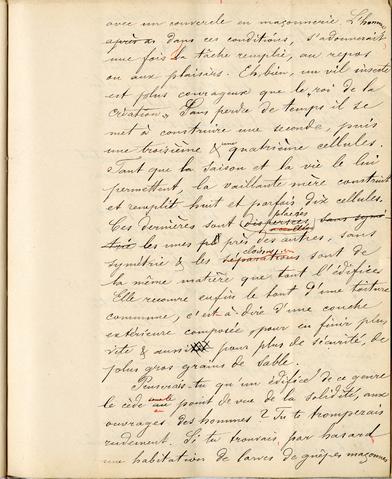 avec un couvercle en maçonnerie. L'homme
après a dans ces conditions, s'adonnerait
une fois la tâche remplie, au repos
ou aux plaisirs. Eh bien, un vil insecte
est plus courageux que le „roi de la
création„ Sans perdre de temps il se
met à construire une seconde, puis
une troisième & une quatrième cellules.
Tant que la saison et la vie le lui
permettent, la vaillante mère construit
et remplit huit et parfois dix cellules.
placées
Ces dernières sont dispersées sans symé-
trie les unes près des autres, sans
cloisons
symétrie & les séparations sont de
la même matière que tout l'édifice.
Elle recouvre enfin le tout d'une toiture
commune, c'est-à-dire d'une couche
extérieure composée, pour en finir plus
vite & aussi pour plus de sécurité, de
plus gros grains de sable.
Penserais-tu qu'un édifice de ce genre
le cède au point de vue de la solidité, aux
ouvrages des hommes ? Tu te tromperais
rudement. Si tu trouvais par hasard
une habitation de larves de guêpes maçonnes